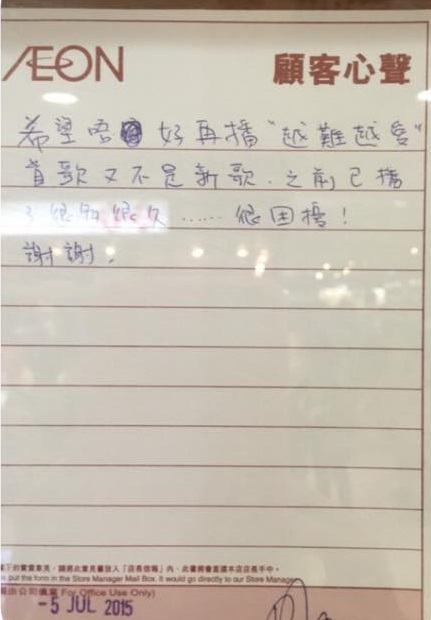 ÆON
顧客心聲
希望唔好再播“越難越愛”
首歌又不是新歌.之前已播
了很多很久……很困擾!
謝謝.
下的寶貴意見,請將此意見書放入「店長信箱」內,此書將會直達本店店長手中。
put the form in the Store Manager Mail Box. It would go directly to our Store Manager
由公司填寫 For Office Use Only)
-5 JUL 2015